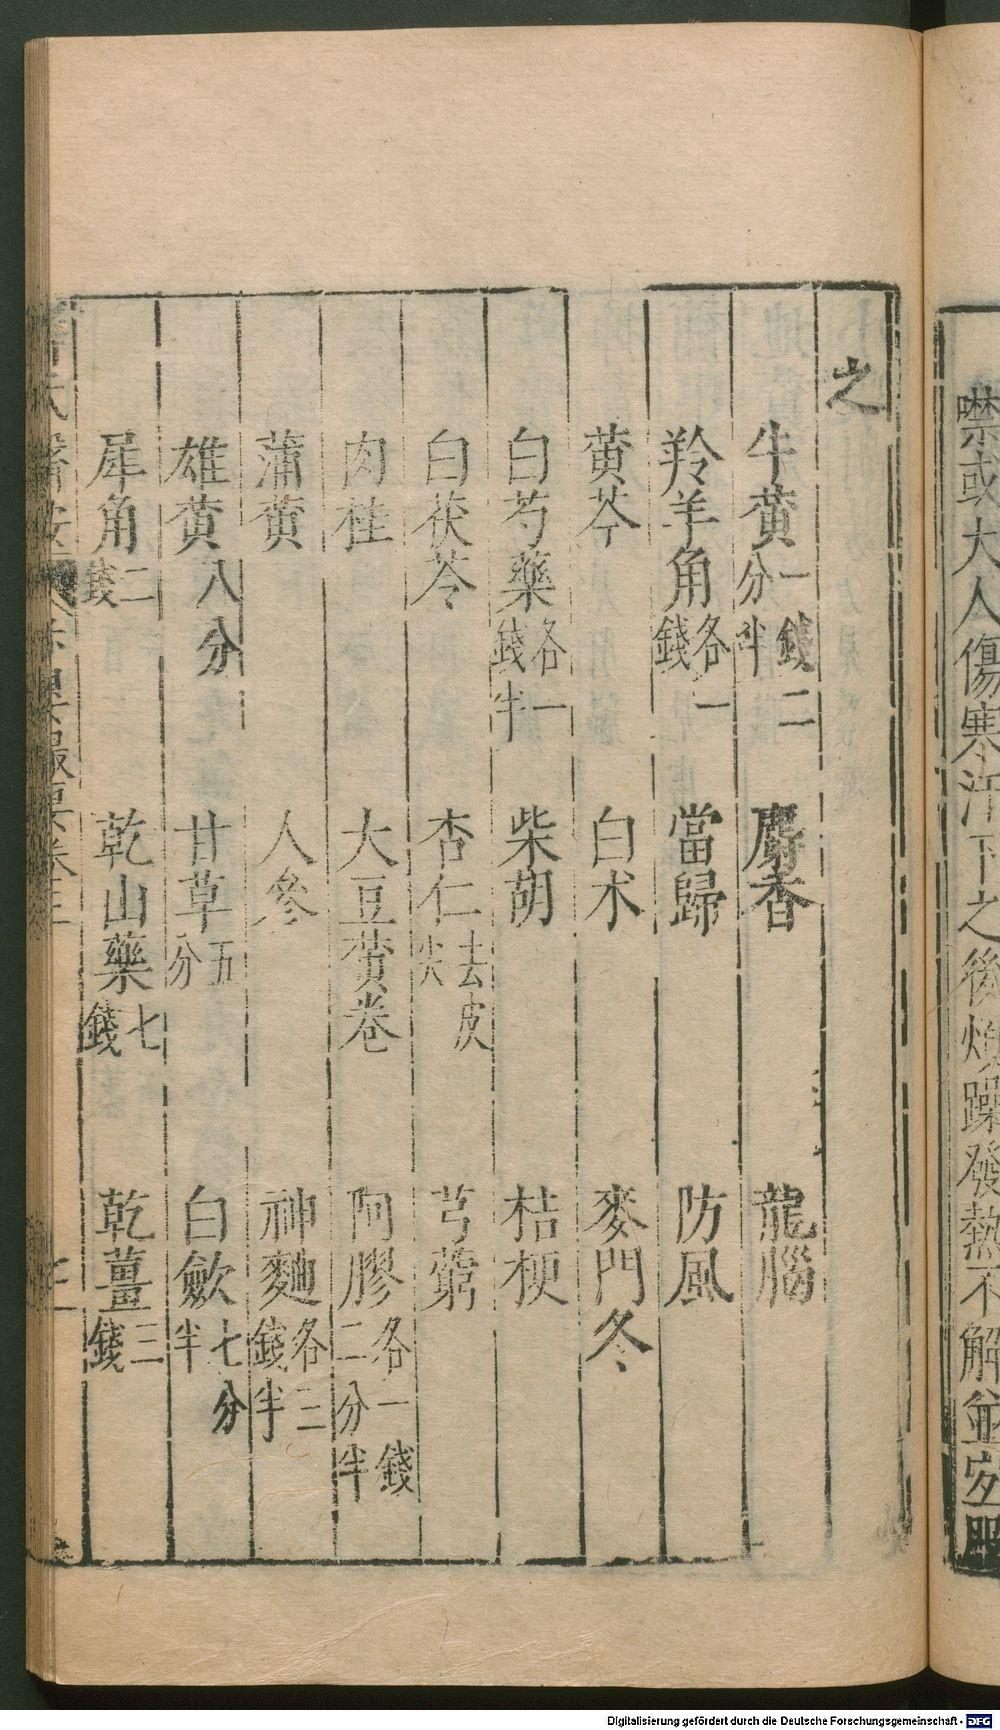 噤或大人傷寒汗下之後煩躁發熱不解並宜服
之
牛黃一錢二分半 麝香 龍腦
羚羊角各一錢 當歸 防風
黃芩 白朮 麥門冬
白芍藥各一錢半 柴胡 桔梗
白茯苓 杏仁去皮尖 芎藭
肉桂 大豆黃卷 阿膠各一錢二分半
蒲黃 人參 神麯各二錢半
雄黃八分 甘草五分 白斂七分半
犀角二錢 乾山藥七錢 乾薑三錢
卷三
Digitalisierung gefördert durch die Deutsche Forschungsgemeinschaft - DFG